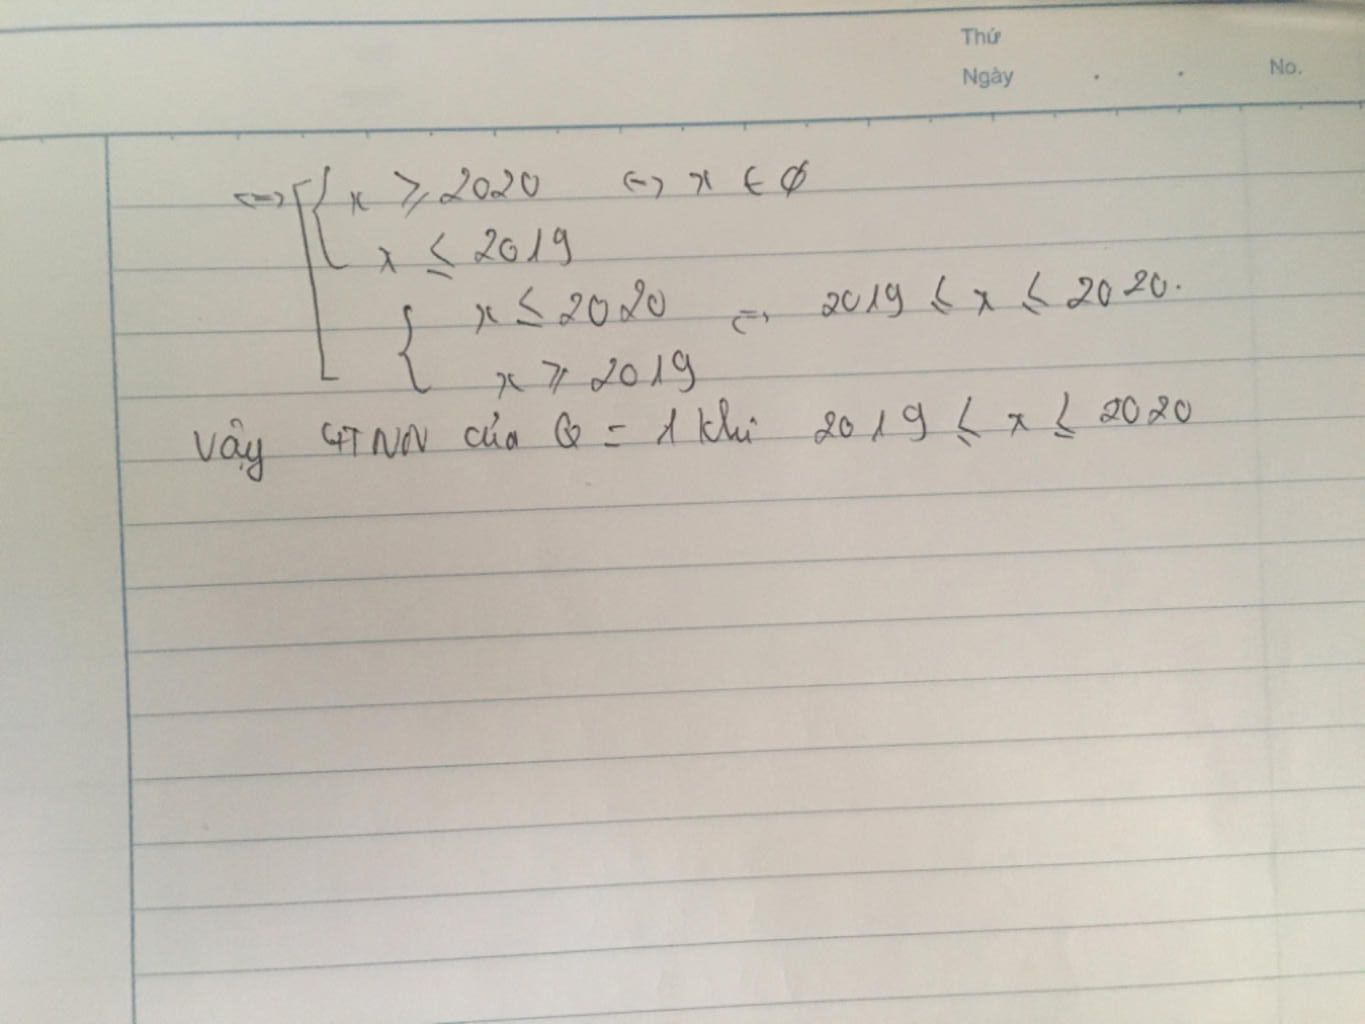 Thứ
Ngày . . No.
<=> [ { x ⩾ 2020 <=> x ∈ ∅
x ≤ 2019
{ x ≤ 2020 <=> 2019 ≤ x ≤ 2020.
x ⩾ 2019
Vậy GTNN của Q = 1 khi 2019 ≤ x ≤ 2020